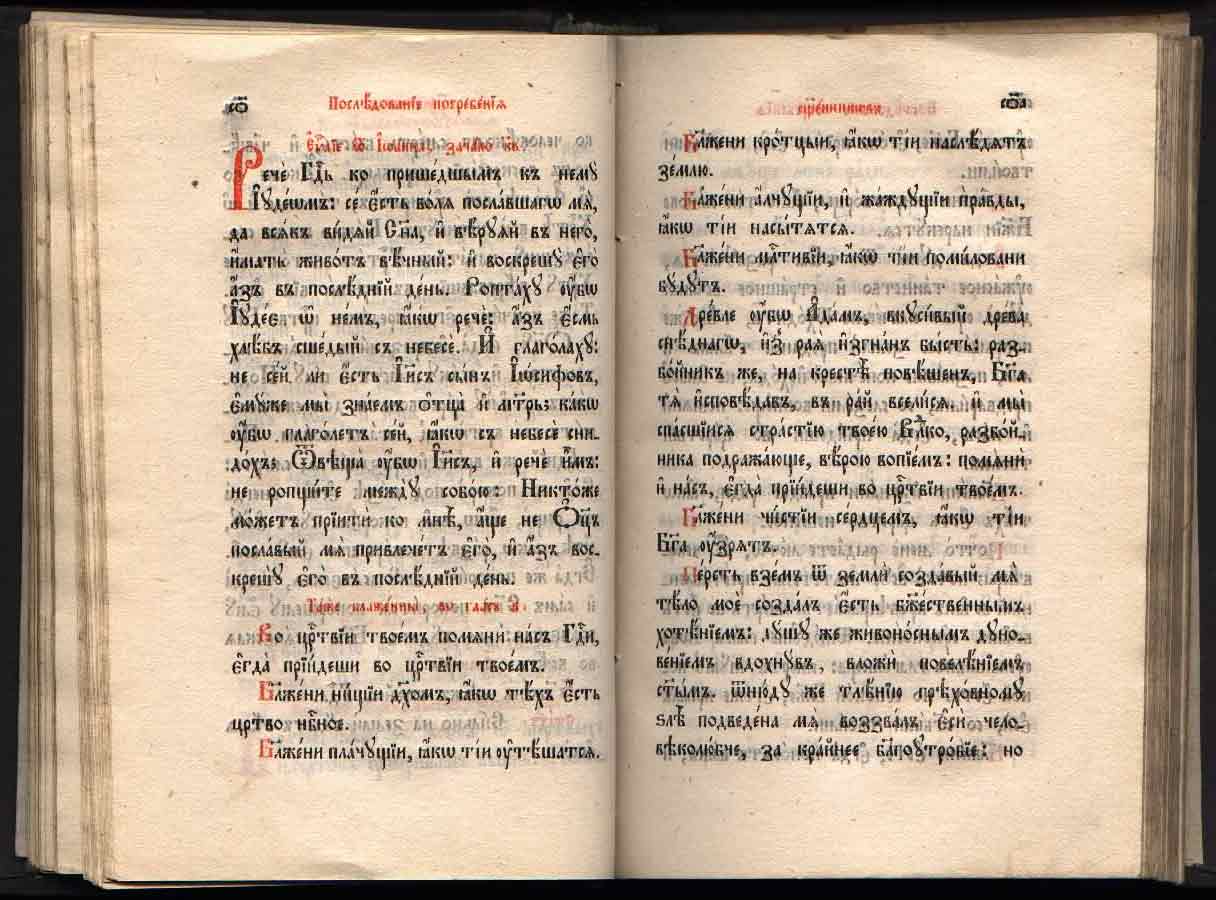 со҃
Послѣ́дованїе погребе́нїѧ
Є҆ѵⷢ҇лїе ѿ І҆ѡа́нна, зача́ло к҃в.
Речѐ Гдⷭ҇ь ко прише́дшымъ къ немꙋ̀
І҆ꙋде́ѡмъ: се́ є҆сть во́лѧ посла́вшагѡ мѧ̀,
да всѧ́къ ви́дѧй Сн҃а, и҆ вѣ́рꙋѧй въ него̀,
и҆́мать живо́тъ вѣ́чный: и҆ воскрешꙋ̀ є҆го̀
а҆́зъ въ послѣ́днїй де́нь. Ропта́хꙋ ᲂу҆̀бѡ
І҆ꙋде́є ѡ҆ не́мъ, ꙗ҆́кѡ речѐ: а҆́зъ є҆́смь
хлѣ́бъ сше́дый съ небесѐ. И҆ глаго́лахꙋ:
не се́й ли є҆́сть І҆и҃съ сы́нъ І҆ѡ́сифовъ,
є҆мꙋ́же мы̀ зна́емъ ѻ҆тца̀ и҆ мт҃рь: ка́кѡ
ᲂу҆̀бѡ глаго́летъ се́й, ꙗ҆́кѡ съ небесѐ сни-
до́хъ; Ѿвѣща̀ ᲂу҆̀бѡ І҆и҃съ, и҆ речѐ и҆̀мъ:
не ропщи́те междꙋ̀ собо́ю: Никто́же
мо́жетъ прїитѝ ко мнѣ̀, а҆́ще не Ѻ҆ц҃ъ
посла́вый мѧ̀ привлече́тъ є҆го̀, и҆ а҆́зъ вос-
крешꙋ̀ є҆го̀ въ послѣ́днїй де́нь.
Та́же блаже́нны, во гла́съ
Во црⷭ҇твїи твое́мъ помѧнѝ на́съ Гдⷭ҇и,
є҆гда̀ прїи́деши во црⷭ҇твїи твое́мъ.
Бл҃же́ни ни́щїи дꙋ́хомъ, ꙗ҆́кѡ тѣ́хъ є҆́сть
црⷭ҇тво нбⷭ҇ное.
Бл҃же́ни пла́чꙋщїи, ꙗ҆́кѡ ті́и ᲂу҆тѣ́шатсѧ.
сщ҃е́нницкѡвъ
соа҃
Бл҃же́ни кро́тцыи, ꙗ҆́кѡ ті́и наслѣ́дѧтъ
зе́млю.
Бл҃же́ни а҆́лчꙋщїи, и҆ жа́ждꙋщїи пра́вды,
ꙗ҆́кѡ ті́и насы́тѧтсѧ.
Бл҃же́ни млⷭ҇тивїи, ꙗ҆́кѡ ті́и поми́ловани
бꙋ́дꙋтъ.
Дре́вле ᲂу҆́бѡ А҆да́мъ, вкꙋси́вый дре́ва
снѣ́днагѡ, и҆з̾ раѧ̀ и҆згна́нъ бы́сть: раз-
бо́йникъ же, на крестѣ̀ повѣ́шенъ, Бг҃а
тѧ̀ и҆сповѣ́давъ, въ ра́й всели́сѧ. и҆ мы̀
спа́сшїисѧ стра́стїю твое́ю Влⷣко, разбо́й-
ника подража́юще, вѣ́рою вопїе́мъ: помѧнѝ
и҆ на́съ, є҆гда̀ прїи́деши во црⷭ҇твїи твое́мъ.
Бл҃же́ни чи́стїи се́рдцемъ, ꙗ҆́кѡ ті́и
Бг҃а ᲂу҆́зрѧтъ.
Пе́рсть взе́мъ ѿ землѝ созда́вый мѧ̀
тѣ́ло моѐ созда́лъ є҆сѝ бж҃е́ственнымъ
хотѣ́нїемъ: дꙋ́шꙋ же живоно́снымъ дꙋно-
ве́нїемъ вдохнꙋ́въ, вложѝ повелѣ́нїемъ
ст҃ы́мъ. ѿню́дꙋ же тлѣ́нїю грѣхо́вномꙋ
ѕлѣ̀ подведе́на мѧ̀ воззва́лъ є҆сѝ чело-
вѣколю́бче, за кра́йнее бл҃гоꙋтро́бїе: но